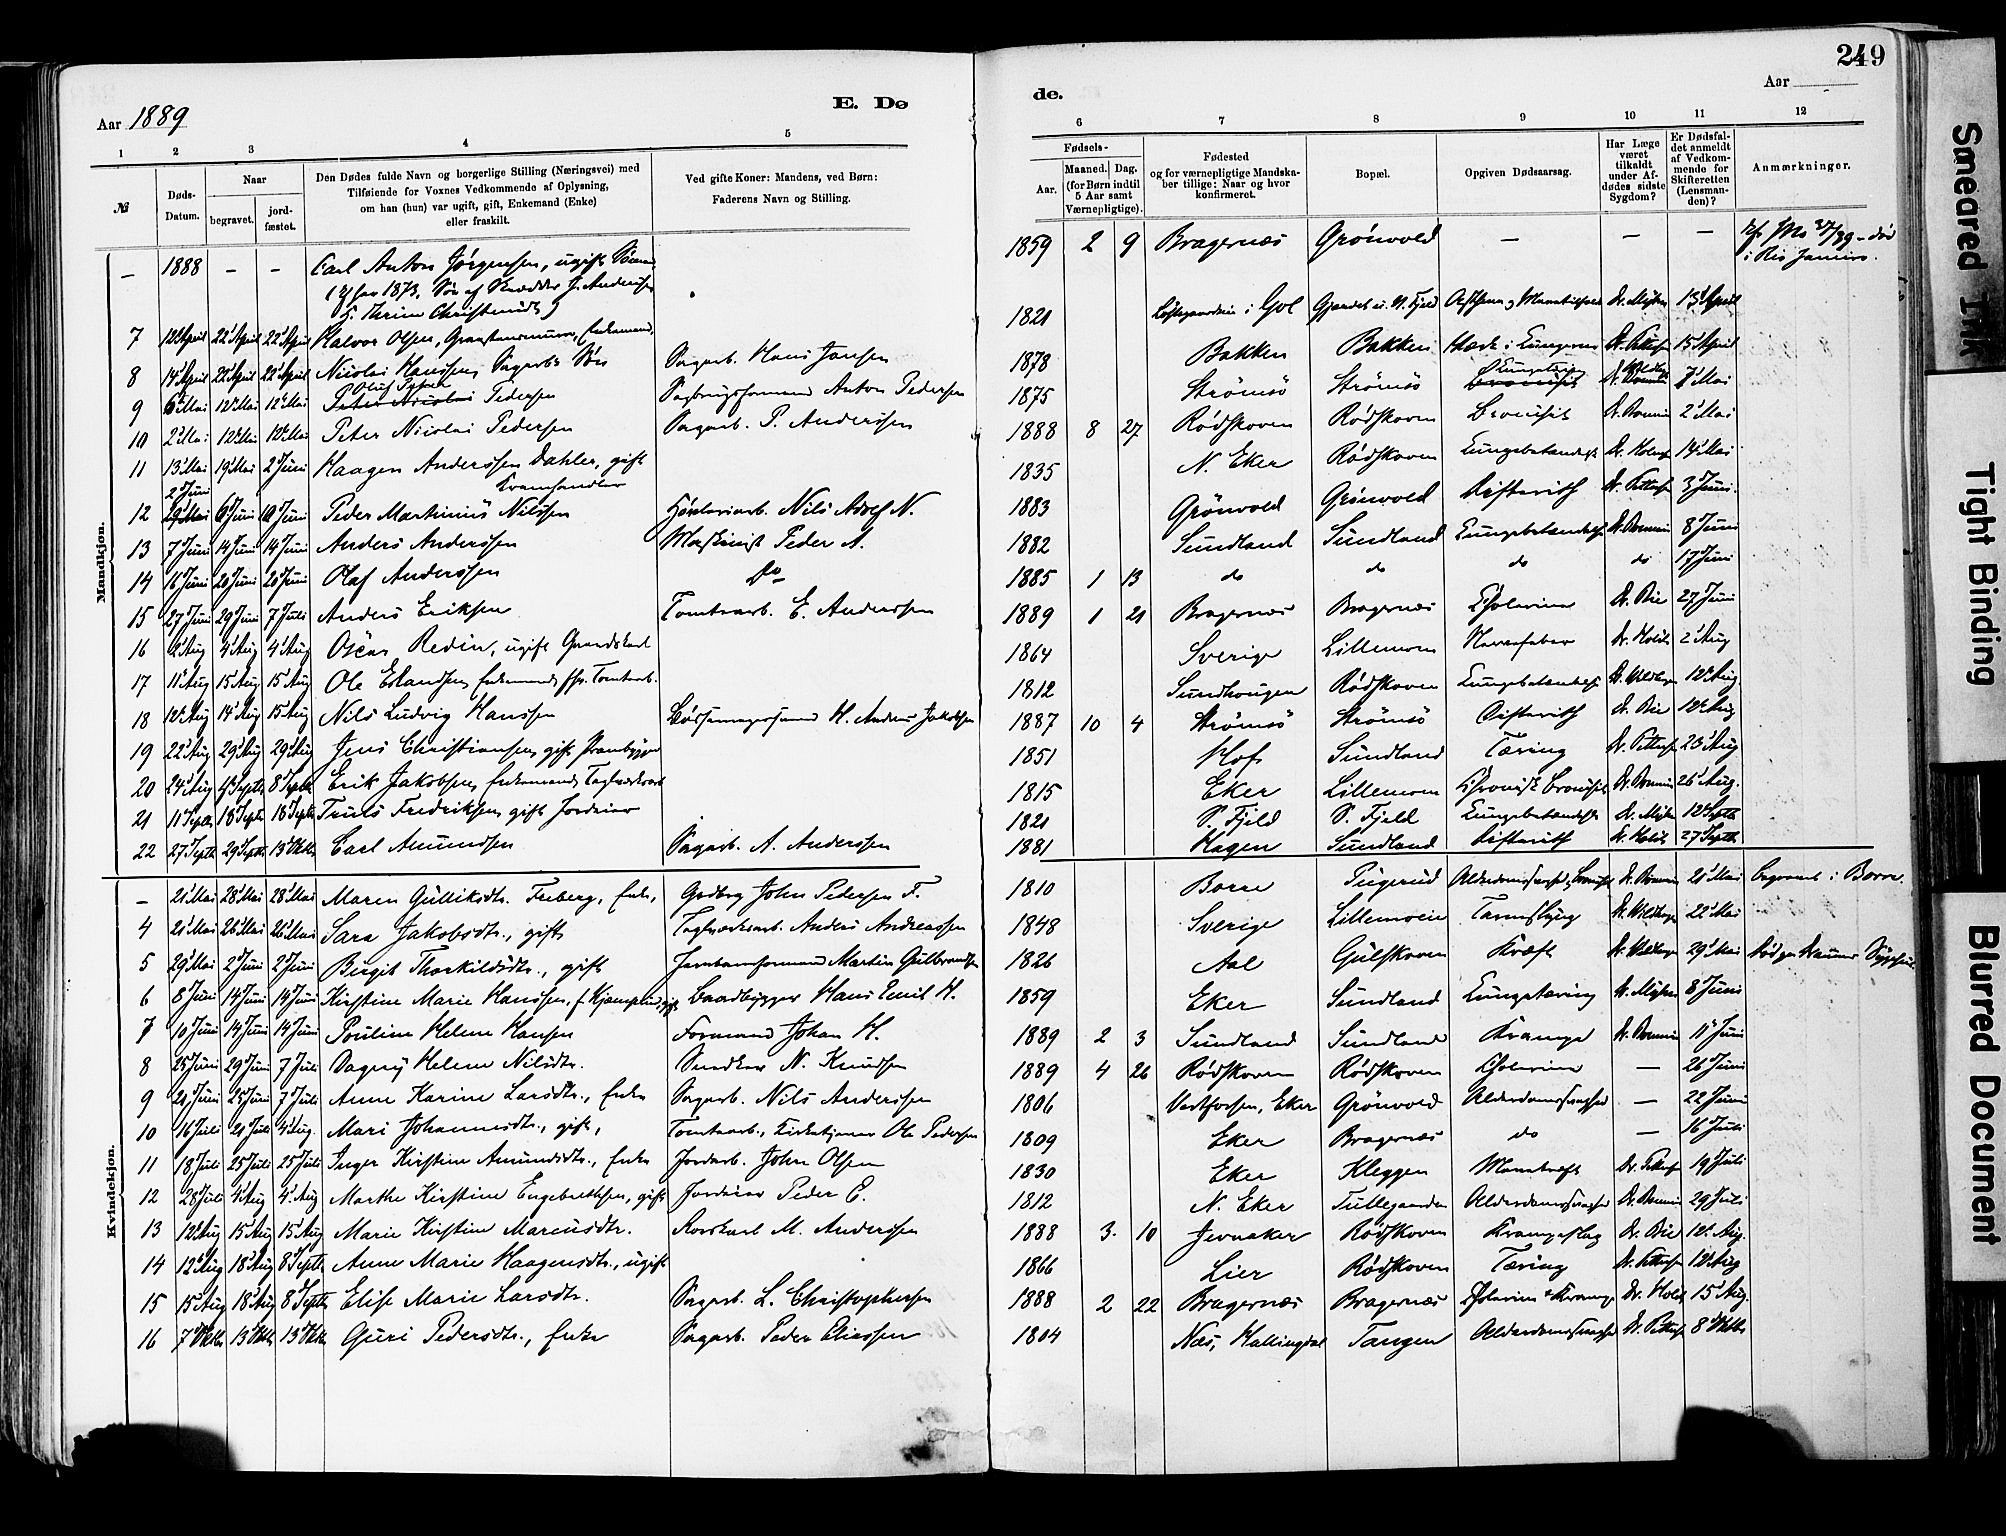 249
Aar 1889
E. Dø
de.
Aar
1 2 3 4 5 6 7 8 9 10 11 12
№
Døds-Datum.
Naar
begravet.
jord-fæstet.
Den Dødes fulde Navn og borgerlige Stilling (Næringsvei) med
Tilføiende for Voxnes Vedkommende af Oplysning,
om han (hun) var ugift, gift, Enkemand (Enke)
eller fraskilt.
Ved gifte Koner: Mandens, ved Børn:
Faderens Navn og Stilling.
Fødsels-
Aar.
Maaned. Dag.
(for Børn indtil
5 Aar samt
Værnepligtige).
Fødested
og for værnepligtige Mandska-
ber tillige: Naar og hvor
konfirmeret.
Bopæl.
Opgiven Dødsaarsag.
Har Læge
været
tilkaldt
under Af-
dødes sidste
Sygdom?
Er Dødsfal-
det anmeldt
af Vedkom-
mende for
Skifteretten
(Lensman-
den)?
Anmærkninger.
Mandkjøn.
– 1888 – – Carl Anton Jørgensen, ugift 1859 2 9 Bragernæs Grönvold – – – død
i Rio Janeiro.
7 12' April 22' April 22' April Halvor Olsen, Enkemand 1821 i Gol 13' April
8 14' April 22' April 22' April Nicolai Hanssen, Sagarbs Søn Sagarb. Hans Jansen 1878 Bakken Bakken 15' April
9 6' Mai 12' Mai 12' Mai Oluf Peter Pedersen Sagbrugsformand Anton Pedersen 1875 Strömsö Strömsö 7' Mai
10 2' Mai 12' Mai 12' Mai Peter Nicolai Pedersen Sagarb. P. Anderssen 1888 8 27 Rødskoven Rødskoven Bronchit 2' Mai
11 13' Mai 19' Mai 2' Juni Haagen Anderssen Dahler, gift
Kramhandler 1835 N. Eker Rødskoven Lungebetændelse 14' Mai
12 2' Juni 6' Juni 10' Juni Peder Martinius Nilssen Nils Adolf N. 1883 Grönvold Grönvold Difterith 3' Juni
13 7' Juni 14' Juni 14' Juni Anders Anderssen Maskinist Peder A. 1882 Sundland Sundland Lungebetændelse 8' Juni
14 16' Juni 20' Juni 20' Juni Olaf Anderssen Do 1885 1 13 do do do do 17' Juni
15 27' Juni 29' Juni 7' Juli Anders Eriksen Tomtearb. E. Anderssen 1889 1 21 Bragernæs Bragernæs Cholerine Dr. Bie 27' Juni
16 2' Aug 4' Aug 4' Aug Oscar Redin, ugift 1864 Sverige Lillemoen Nervefeber Dr. Holst 2' Aug
17 11' Aug 15' Aug 15' Aug Ole Erlandsen, Enkemand, Tomtearb. 1812 Sundhougen Rødskoven Lungebetændelse 12' Aug
18 12' Aug 14' Aug 15' Aug Nils Ludvig Hanssen H. Andreas Jakobsen 1887 10 4 Strömsö Strömsö Difterith Dr. Bie 12' Aug
19 22' Aug 29' Aug 29' Aug Jens Christiansen, gift Prambygger 1851 Hof Sundland Tæring 23' Aug
20 24' Aug 4' Septb 8' Septb Erik Jakobsen, Enkemand, Teglværksarb 1815 Eker Lillemoen Chronisk Bronchit 26' Aug.
21 11' Septb 18' Septb 18' Septb Truls Fredriksen, gift Jordeier 1821 S. Fjeld S. Fjeld Lungebetændelse 12' Septb
22 27' Septb 29' Septb 13' Oktb Carl Amundsen Sagarb. A. Anderssen 1881 Hagen Sundland Difterith Dr. Holst 27' Septb
Kvindekjøn.
– 21' Mai 28' Mai 28' Mai Maren Gulliksdtr. Freberg, Enke, Gbrbrg John Pedersen F. 1810 Borre 21' Mai begravet i Borre.
4 21' Mai 26' Mai 26' Mai Sara Jakobsdtr., gift Teglværksarb. Anders Andreassen 1848 Sverige Lillemoen Tarmslyng 22' Mai
5 29' Mai 2' Juni 2' Juni Birgit Thorkildsdtr., gift Martin Gulbrandsen 1826 Aal Gulskoven Kræft 29' Mai
6 8' Juni 14' Juni 14' Juni Kirstine Marie Hanssen, gift Baadbygger Hans Emil H. 1859 Eker Sundland Lungetæring 8' Juni
7 10' Juni 14' Juni 14' Juni Pouline Helene Hansen Formand Johan H. 1889 2 3 Sundland Sundland Krampe 11' Juni
8 25' Juni 29' Juni 7' Juli Dagny Helene Nilsdtr. N. Knudsen 1889 4 26 Rødskoven Rødskoven Cholerine – 26' Juni
9 21' Juni 25' Juni 7' Juli Anne Karine Larsdtr., Enke Sagarb. Nils Anderssen 1806 Vestfossen, Eker Grönvold Alderdomssvaghed – 22' Juni
10 16' Juli 21' Juli 4' Aug. Mari Johannesdtr., gift, Tomtearb., Kirketjener Ole Pedersen 1809 Eker Bragernæs do – 16' Juli
11 18' Juli 25' Juli 25' Juli Inger Kirstine Amundsdtr., Enke Jordarb. John Olsen 1830 Eker Kleggen Mavekræft 19' Juli
12 28' Juli 4' Aug 4' Aug Marthe Kirstine Engebrethsen, gift Jordeier Peder E. 1812 N. Eker Alderdomssvaghed 29' Juli
13 12' Aug 15' Aug 15' Aug Marie Kirstine Marcusdtr. Rorskarl M. Anderssen 1888 3 10 Jevnaker Rødskoven Krampeslag Dr. Bie 12' Aug.
14 12' Aug 18' Aug 8' Septb Anne Marie Haagensdtr., ugift 1866 Lier Rødskoven Tæring 12' Aug
15 15' Aug 18' Aug 8' Septb Elise Marie Larsdtr. Sagarb. L. Christophersen 1888 2 22 Bragernæs Bragernæs Cholerine & Krampe Dr. Holst 15' Aug.
16 7' Oktb 13' Oktb 13' Oktb Guri Pedersdtr., Enke Sagarb. Peder Eliassen 1804 Næs, Hallingdal Tangen Alderdomssvaghed 8' Oktb
Smeared Ink
Tight Binding
Blurred Document